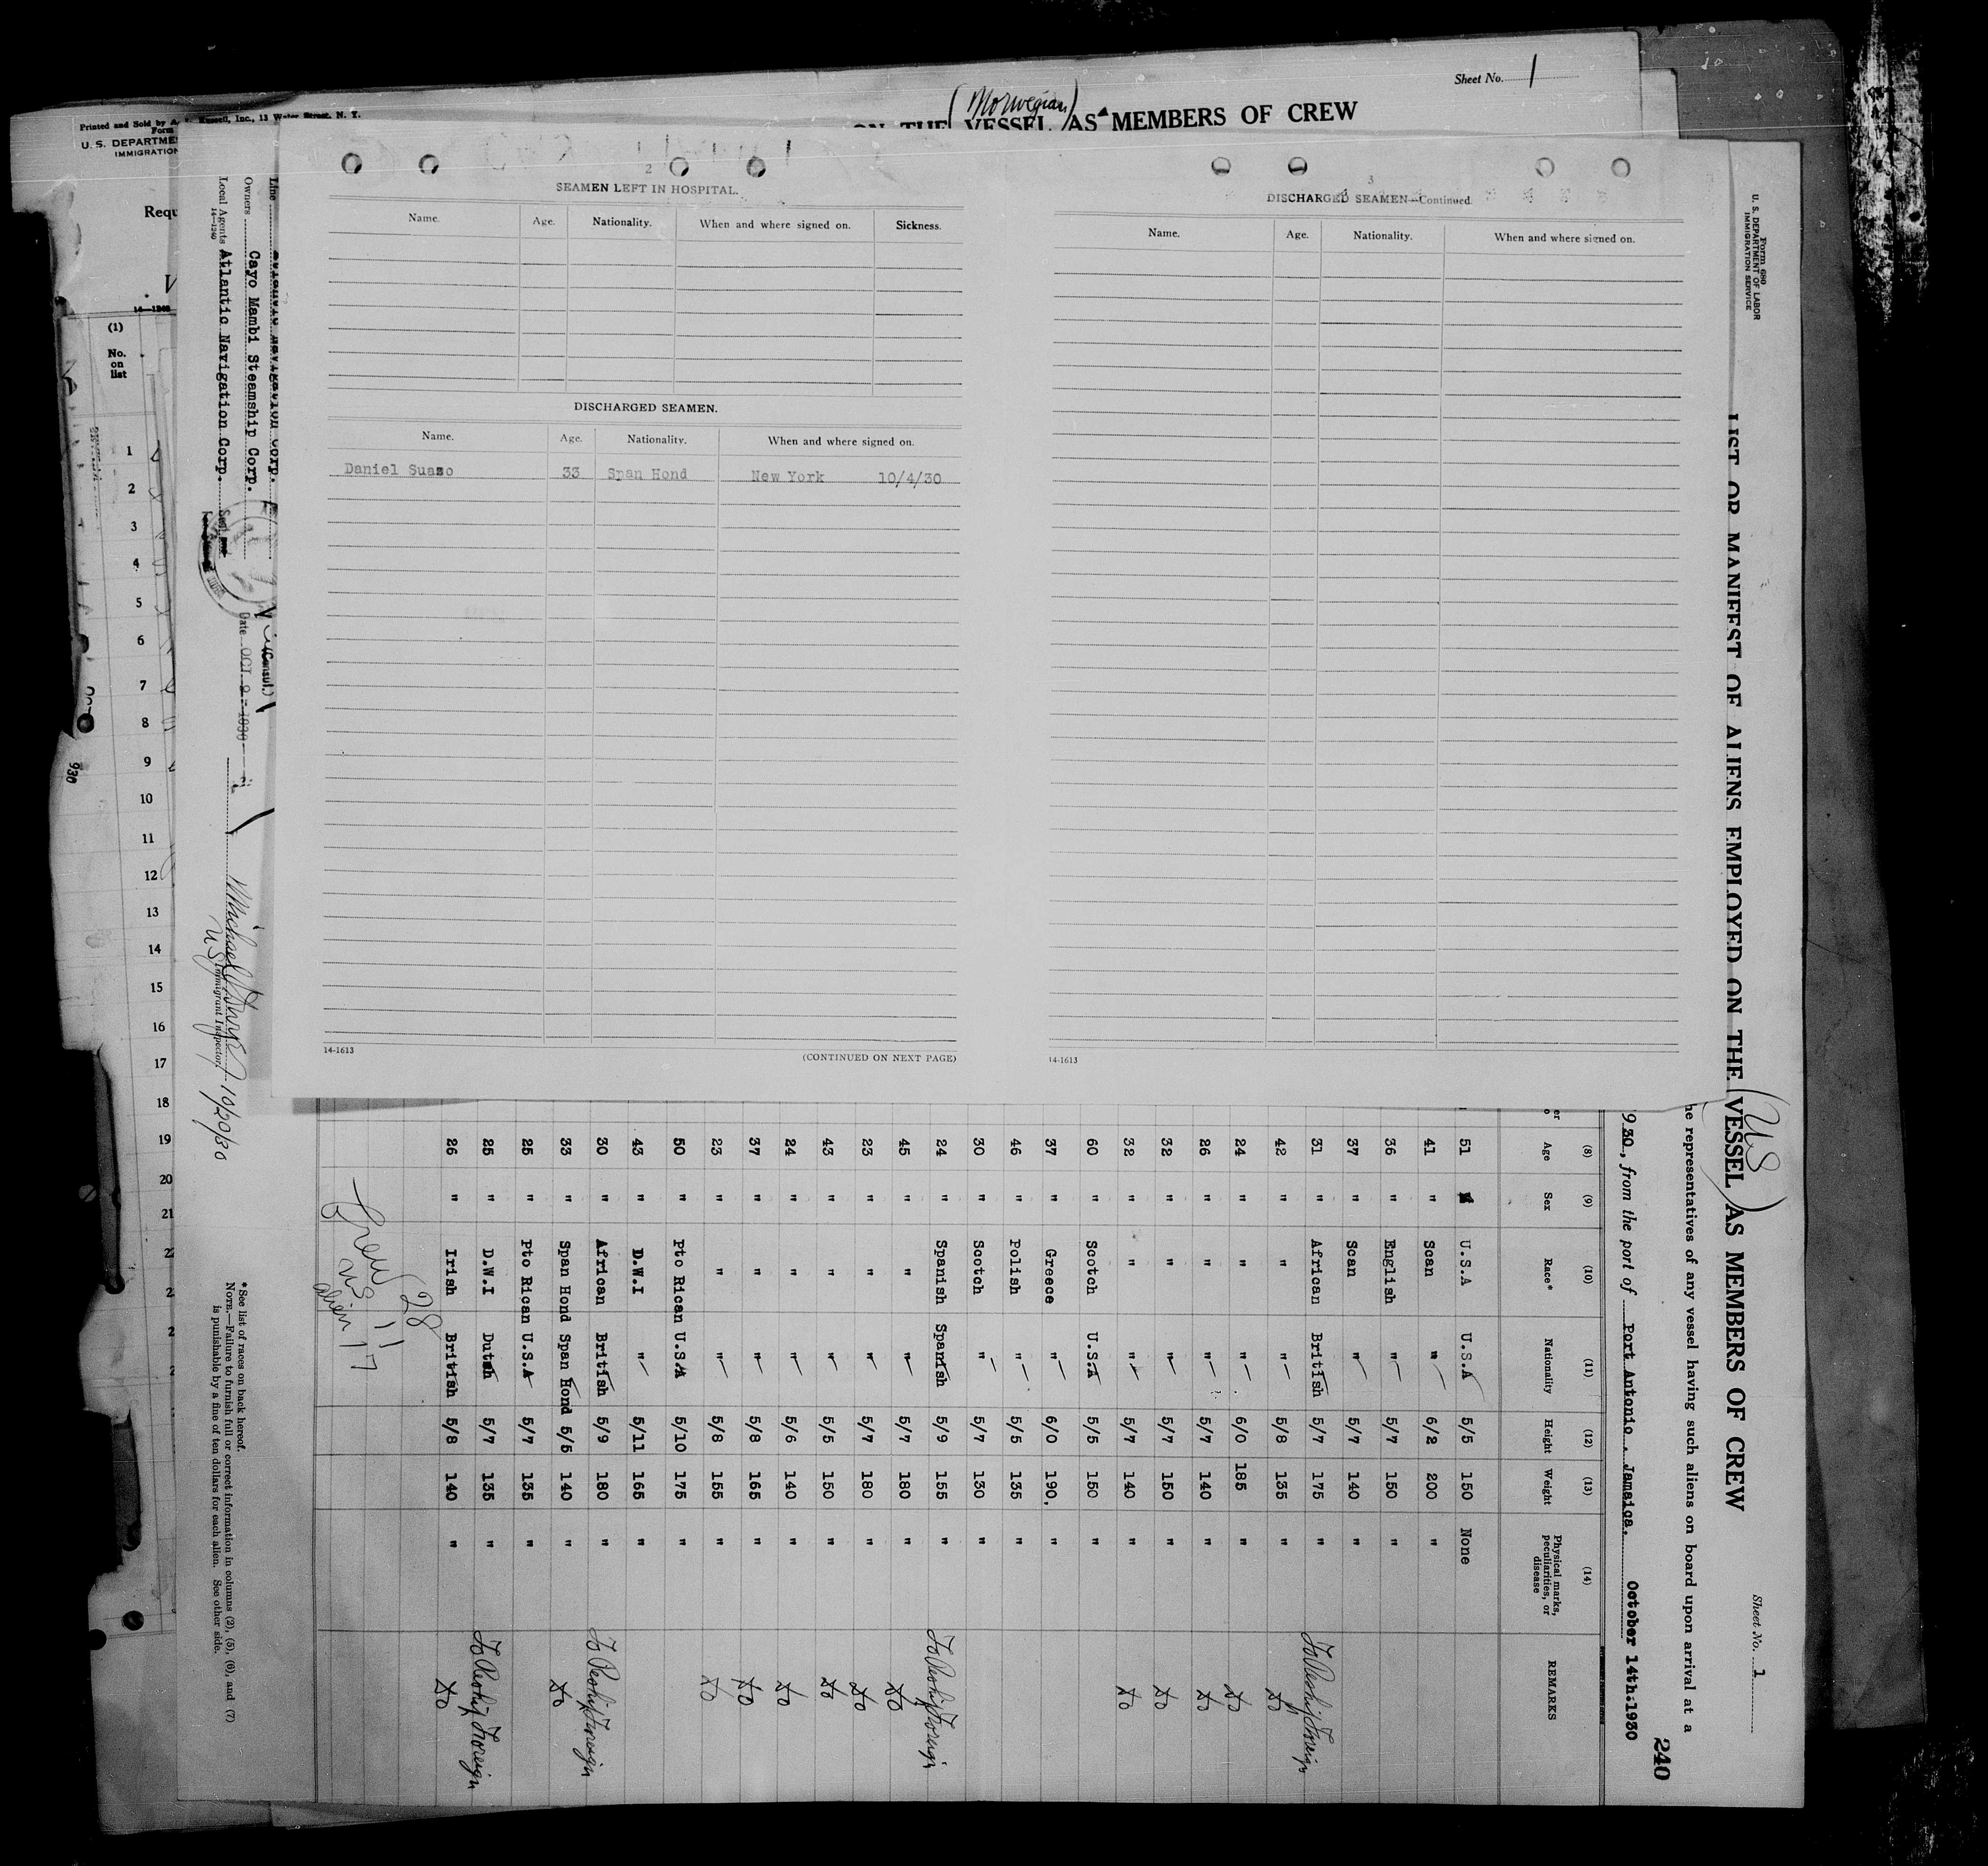 Sheet No. 1
(Norwegian)
ON THE VESSEL AS MEMBERS OF CREW
Printed and Sold by
Inc., 13 Water Street, N. Y.
Form
U. S. DEPARTME
IMMIGRATION
Requ
14-1240
(1)
No.
on
list
1
2
3
4
5
6
7
8
9
10
11
12
13
14
15
16
17
18
19
20
21
930
2
SEAMEN LEFT IN HOSPITAL.
Name. Age. Nationality. When and where signed on. Sickness.
DISCHARGED SEAMEN.
Name. Age. Nationality. When and where signed on.
Daniel Suazo 33 Span Hond New York 10/4/30
14-1613
(CONTINUED ON NEXT PAGE)
3
DISCHARGED SEAMEN—Continued.
Name. Age. Nationality. When and where signed on.
14-1613
Form 680
U. S. DEPARTMENT OF LABOR
IMMIGRATION SERVICE
Sheet No. 1
(US)
LIST OR MANIFEST OF ALIENS EMPLOYED ON THE VESSEL AS MEMBERS OF CREW
240
he representatives of any vessel having such aliens on board upon arrival at a
930, from the port of Port Antonio. Jamaica. October 14th.1930
(8) (9) (10) (11) (12) (13) (14)
Age Sex Race* Nationality Height Weight Physical marks, peculiarities, or disease REMARKS
51 U.S.A U.S.A 5/5 150 None
41 " Scan " 6/2 200 "
36 " English " 5/7 150 "
37 " Scan " 5/7 140 "
31 " African British 5/7 175 " To Reship Foreign
42 " " " 5/8 135 " Do
24 " " " 6/0 185 " Do
26 " " " 5/7 140 " Do
32 " " " 5/7 150 " Do
32 " " " 5/7 140 " Do
60 " Scotch U.S.A 5/5 150 "
37 " Greece " 6/0 190, "
46 " Polish " 5/5 135 "
30 " Scotch " 5/7 130 "
24 " Spanish Spanish 5/9 155 " To Reship Foreign
45 " " " 5/7 180 " Do
23 " " " 5/7 180 " Do
43 " " " 5/5 150 " Do
24 " " " 5/6 140 " Do
37 " " " 5/8 165 " Do
23 " " " 5/8 155 " Do
50 " Pto Rican U.S.A 5/10 175 "
43 " D.W.I " 5/11 165 "
30 " African British 5/9 180 " To Reship Foreign
33 " Span Hond Span Hond 5/5 140 " Do
25 " Pto Rican U.S.A 5/7 135 "
25 " D.W.I Dutch 5/7 135 " To Reship Foreign
26 " Irish British 5/8 140 " Do
Crew 28
US 11
alien 17
Line Atlantic Navigation Corp.
Owners Cayo Mambi Steamship Corp.
Local Agents Atlantic Navigation Corp.
14-1240
(Consul.)
Date OCT 2 - 1930
10/20/30
US Immigrant Inspector.
*See list of races on back hereof.
NOTE.—Failure to furnish full or correct information in columns (2), (5), (6), and (7)
is punishable by a fine of ten dollars for each alien. See other side.